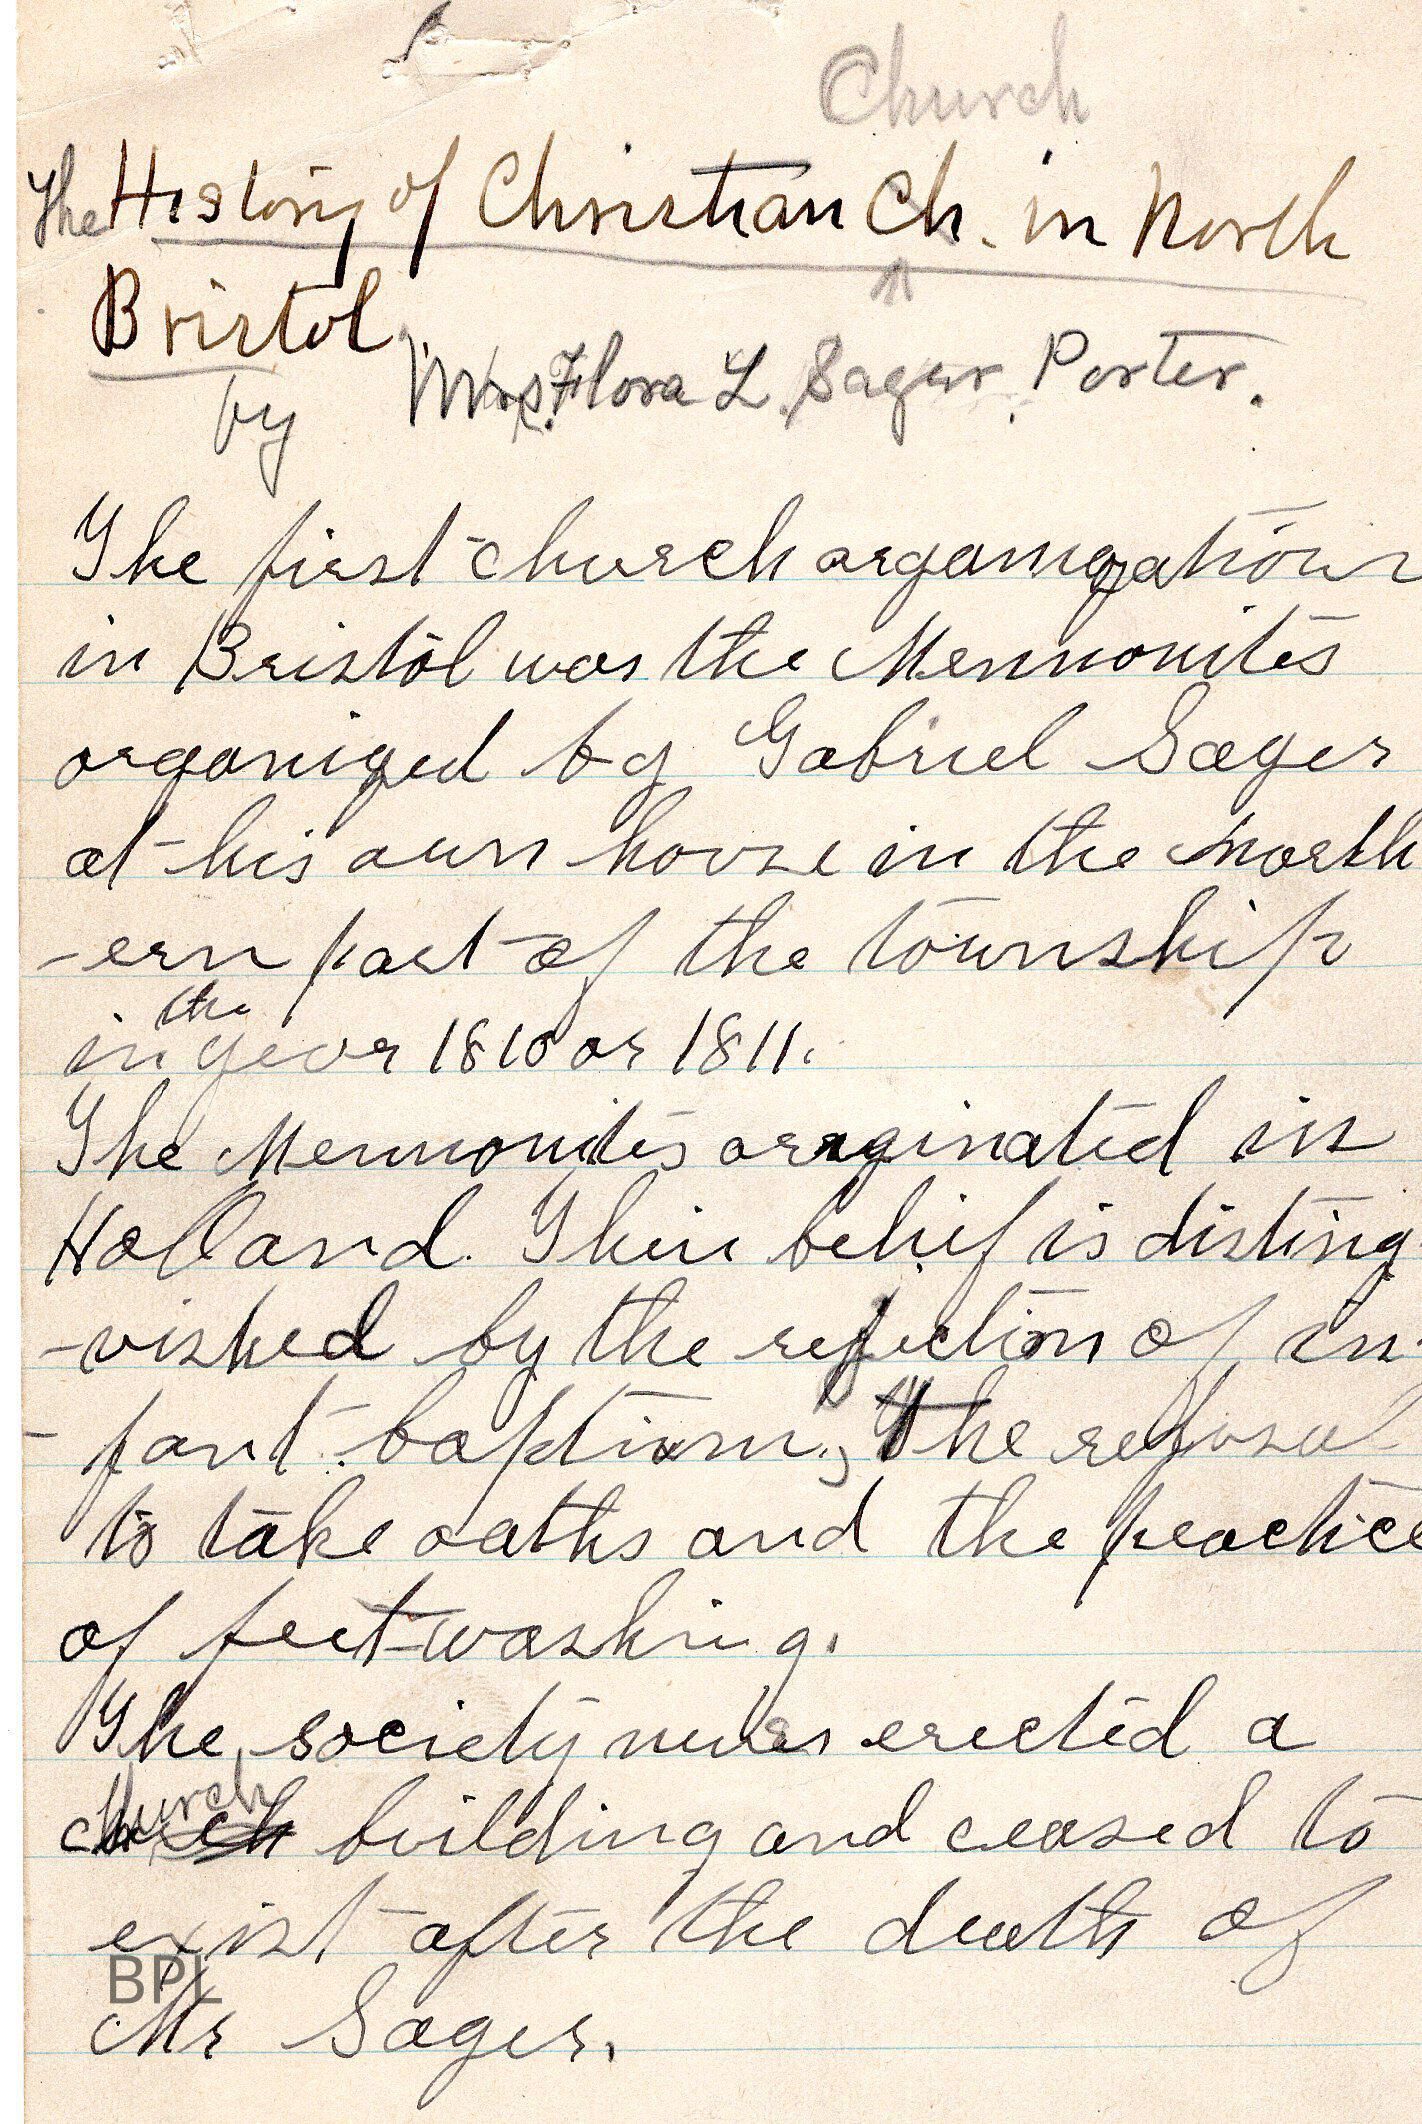 Church
The History of Christian Ch. in North
Bristol
by Mrs. Flora L. Sager Porter.
The first church organization
in Bristol was the Mennonites
organized by Gabriel Sager
at his own house in the north
-ern part of the township
the
in year 1810 or 1811.
The Mennonites originated in
Holland. Their belief is disting
-uished by the rejection of in-
-fant baptism, the refusal
to take oaths and the practice
of feet-washing.
The society never erected a
church
building and ceased to
exist after the death of
BPL
Mr Sager.